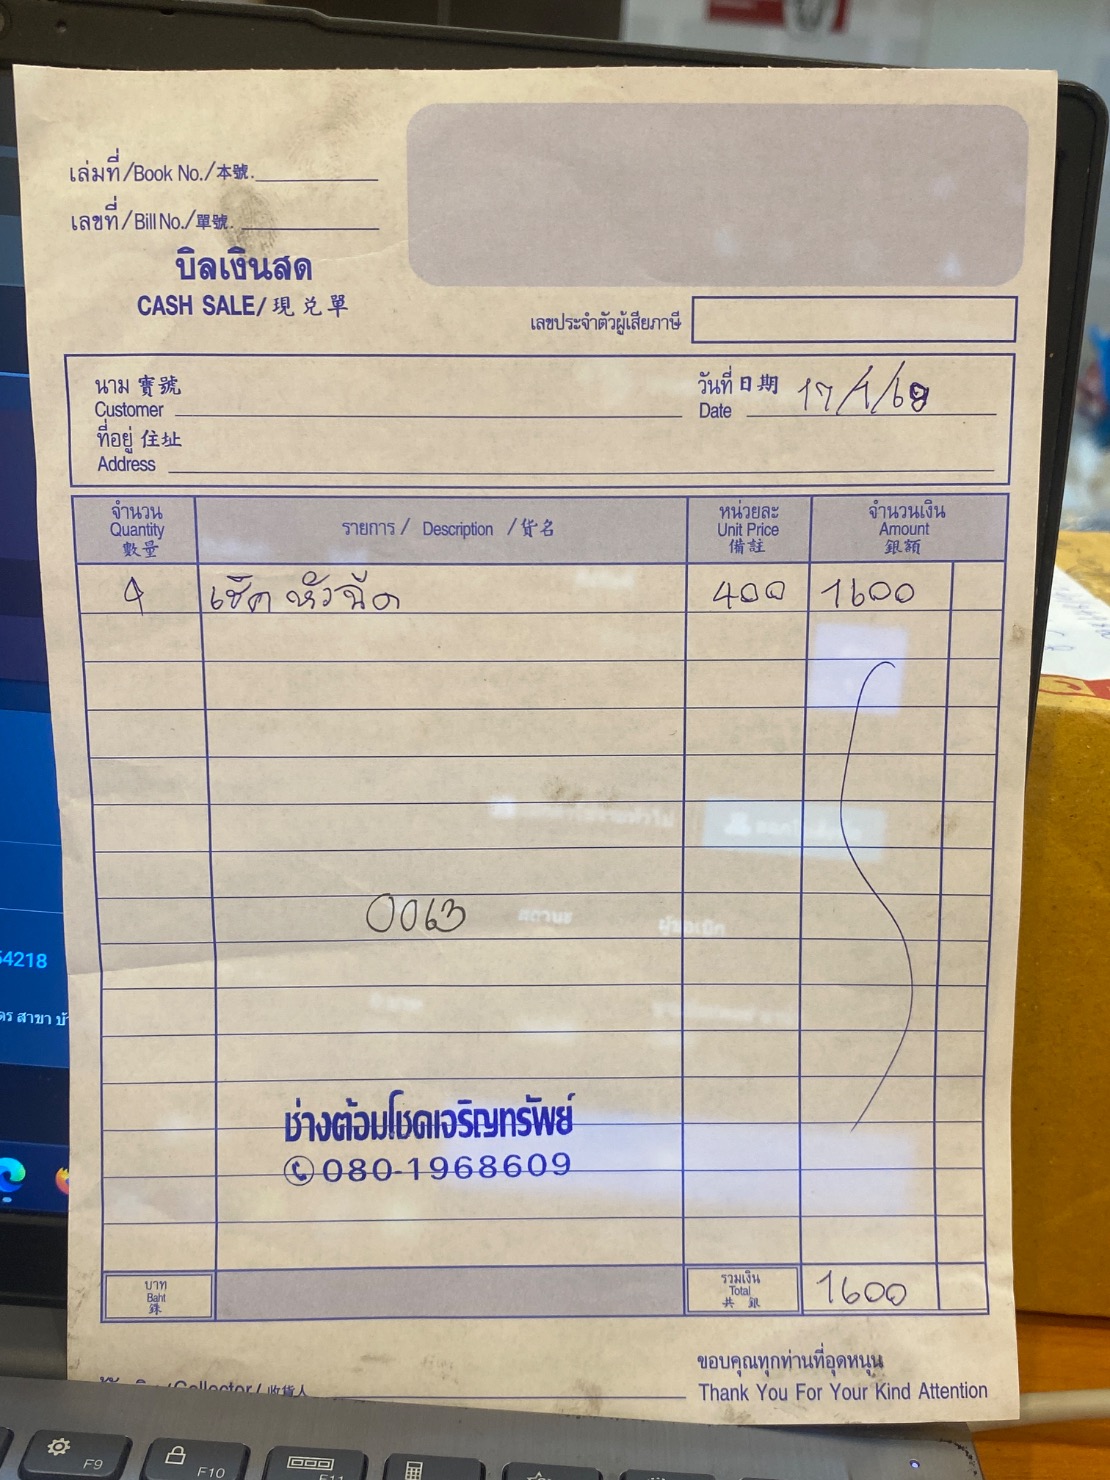 เล่มที่/Book No./本號.
เลขที่/Bill No./單號.
บิลเงินสด
CASH SALE/現兑單
เลขประจำตัวผู้เสียภาษี
นาม 寶號
Customer
วันที่ 日期
Date
17/1/68
ที่อยู่ 住址
Address
จำนวน
Quantity
數量
รายการ / Description / 貨名
หน่วยละ
Unit Price
備註
จำนวนเงิน
Amount
銀額
4 เช็ค หัวฉีด 400 1600
0063
54218
ช่างต้อมโชคเจริญทรัพย์
080-1968609
บาท
Baht
銖
รวมเงิน
Total
共 銀
1600
ขอบคุณทุกท่านที่อุดหนุน
Thank You For Your Kind Attention
Collector/收貨人
F9
F10
F11